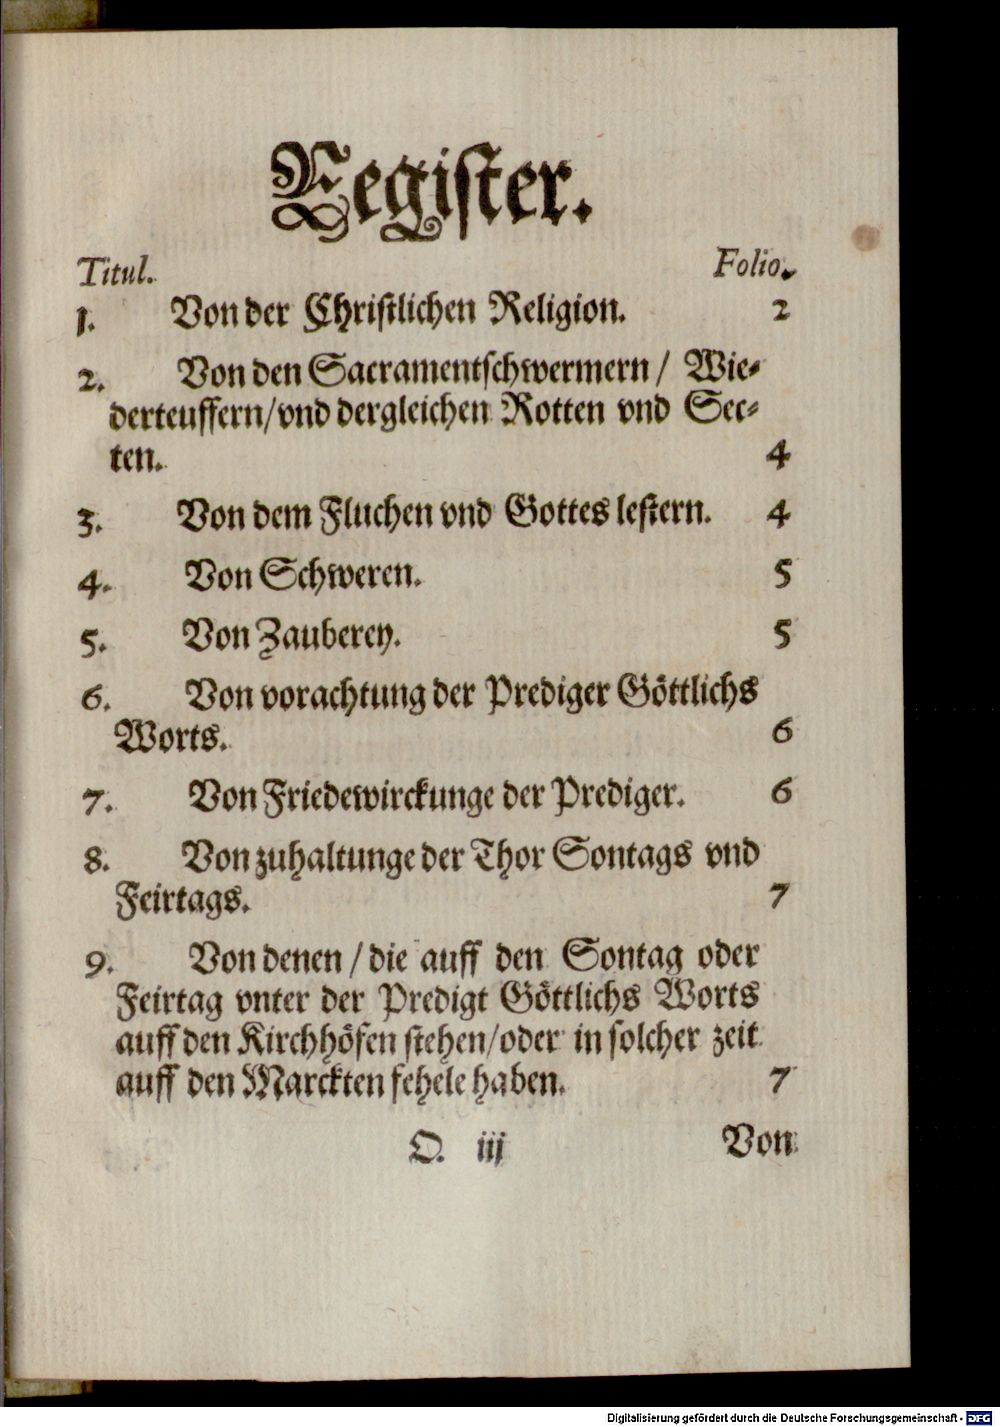 Register.
Titul. Folio.
1. Von der Christlichen Religion. 2
2. Von den Sacramentschwermern / Wie⸗
derteuffern/vnd dergleichen Rotten vnd Sec⸗
ten. 4
3. Von dem Fluchen vnd Gottes lestern. 4
4. Von Schweren. 5
5. Von Zauberey. 5
6. Von vorachtung der Prediger Göttlichs
Worts. 6
7. Von Friedewirckunge der Prediger. 6
8. Von zuhaltunge der Thor Sontags vnd
Feirtags. 7
9. Von denen / die auff den Sontag oder
Feirtag vnter der Predigt Göttlichs Worts
auff den Kirchhöfen stehen/oder in solcher zeit
auff den Marckten fehele haben. 7
O. iij Von
Digitalisierung gefördert durch die Deutsche Forschungsgemeinschaft - DFG